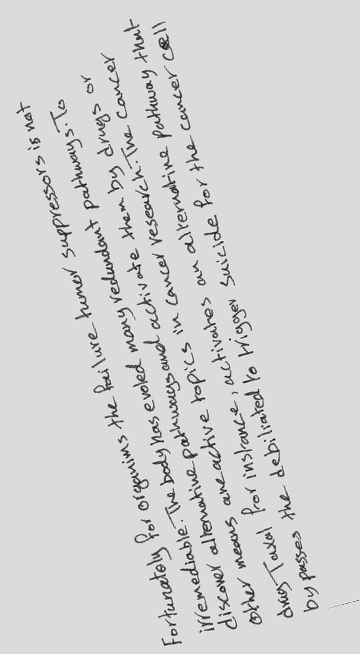 Fortunately for organims the failure tumor suppressors is not
irremediable. The body has evoled many redundant pathways. To
discover alternative pathways and activate them by drugs or
other means are active topics in cancer research. The cancer
drug Taxal for instance, activates an alternative pathway that
by passes the debiliated to trigger suicide for the cancer cell